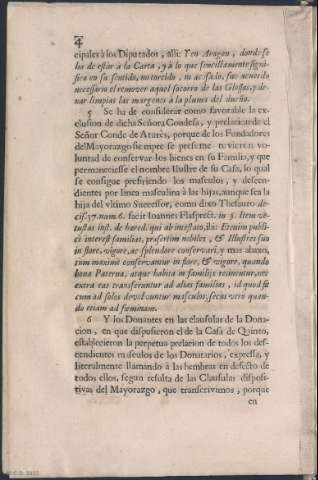 4
cipales à los Diputados, alli: Y en Aragon, donde se
ha de estàr à la Carta, y à lo que sencillamente signi-
fica en su sentido, no torcido, ni acaso, fue acuerdo
necessario el remover aquel socorro de las Glossas, y de-
xar limpias las margenes à la pluma del dueño.
5 Se ha de considerar como favorable la ex-
clusion de dicha Señora Condesa, y prelacia de el
Señor Conde de Atarès, porque de los Fundadores
del Mayorazgo siempre se presume tuvieron vo-
luntad de conservar los bienes en su Familia, y que
permaneciesse el nombre Ilustre de su Casa, lo qual
se consigue prefiriendo los masculos, y descen-
dientes por linea masculina à las hijas, aunque sea la
hija del vltimo Sucessor, como dixo Thesauro de-
cis. 27. num. 6. facit Ioannes Flasprect. in §. Item ve-
tustas inst. de hæred. qui ab intestato, ibi: Etenim publi-
ce interest familias, præsertim nobiles, & Illustres suo
in flore, vigore, ac splendore conservari, y mas abaxo,
tum maxime conservantur in flore, & vigore, quando
bona Paterna, atque habita in familijs retinentur, nec
extra eas transferuntur ad alias familias, id quod fit
cum ad solos devolvuntur masculos, secus vero quan-
do etiam ad fæminam.
6 Y los Donantes en las clausulas de la Dona-
cion, en que dispusieron el de la Casa de Quinto,
establecieron la perpetua prelacion de todos los des-
cendientes masculos de los Donatarios, expressa, y
literalmente llamando à las hembras en defecto de
todos ellos, segun resulta de las Clausulas disposi-
tivas del Mayorazgo, que transcrivimos, porque
en